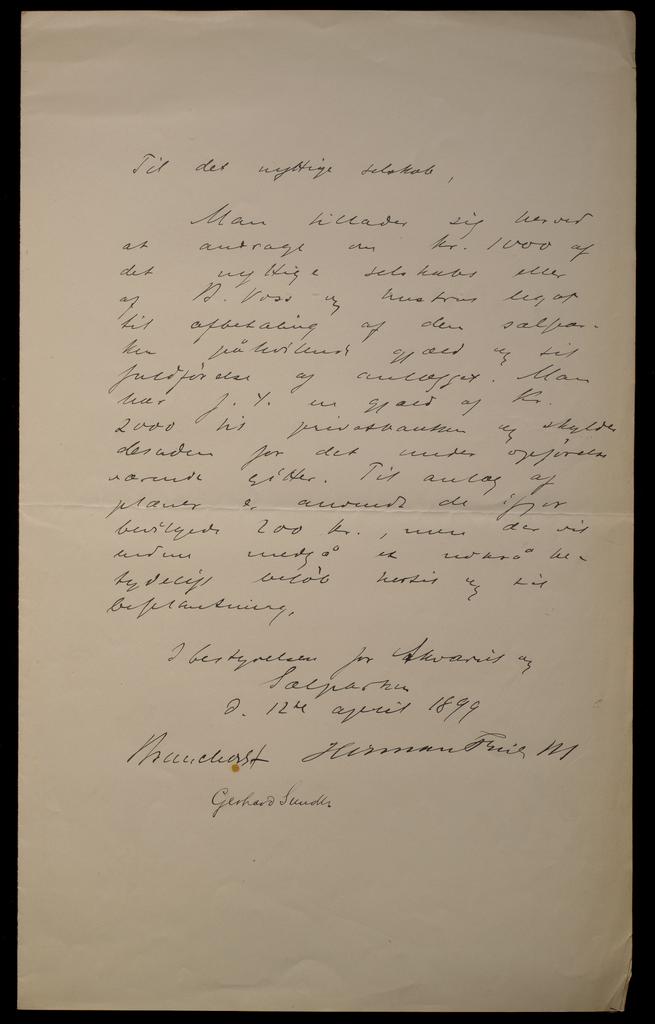 Til det nyttige selskab,
Man tillader sig herved
at andrage om kr. 1000 af
det nyttige selskabs eller
af B. Voss og hustrus legat
til afbetaling af den sælpar-
ken påhvilende gjæld og til
fuldførelse af anlægget. Man
har f. t. en gjæld af kr.
2000 til privatbanken og skylder
desuden for det under opførelse
værende gitter. Til anlæg af
plæner er anvendt de ifjor
bevilgede 200 kr., men der vil
endnu medgå et nokså be-
tydeligt beløb hertil og til
beplantning.
I bestyrelsen for Akvariet og
Sælparken
d. 12te april 1899
Brunchorst Herman Friele
Gerhard Sundt